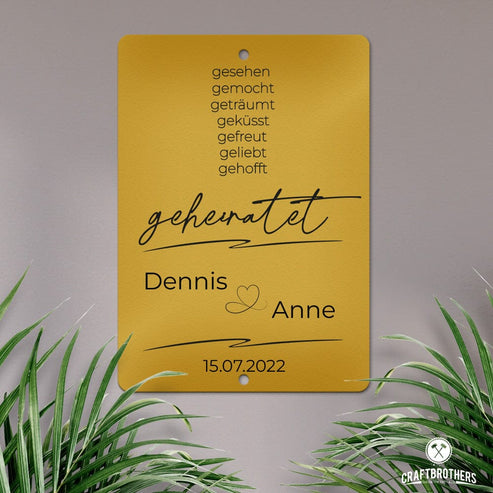 gesehen
gemocht
geträumt
geküsst
gefreut
geliebt
gehofft
geheiratet
Dennis
Anne
15.07.2022
CRAFTBROTHERS